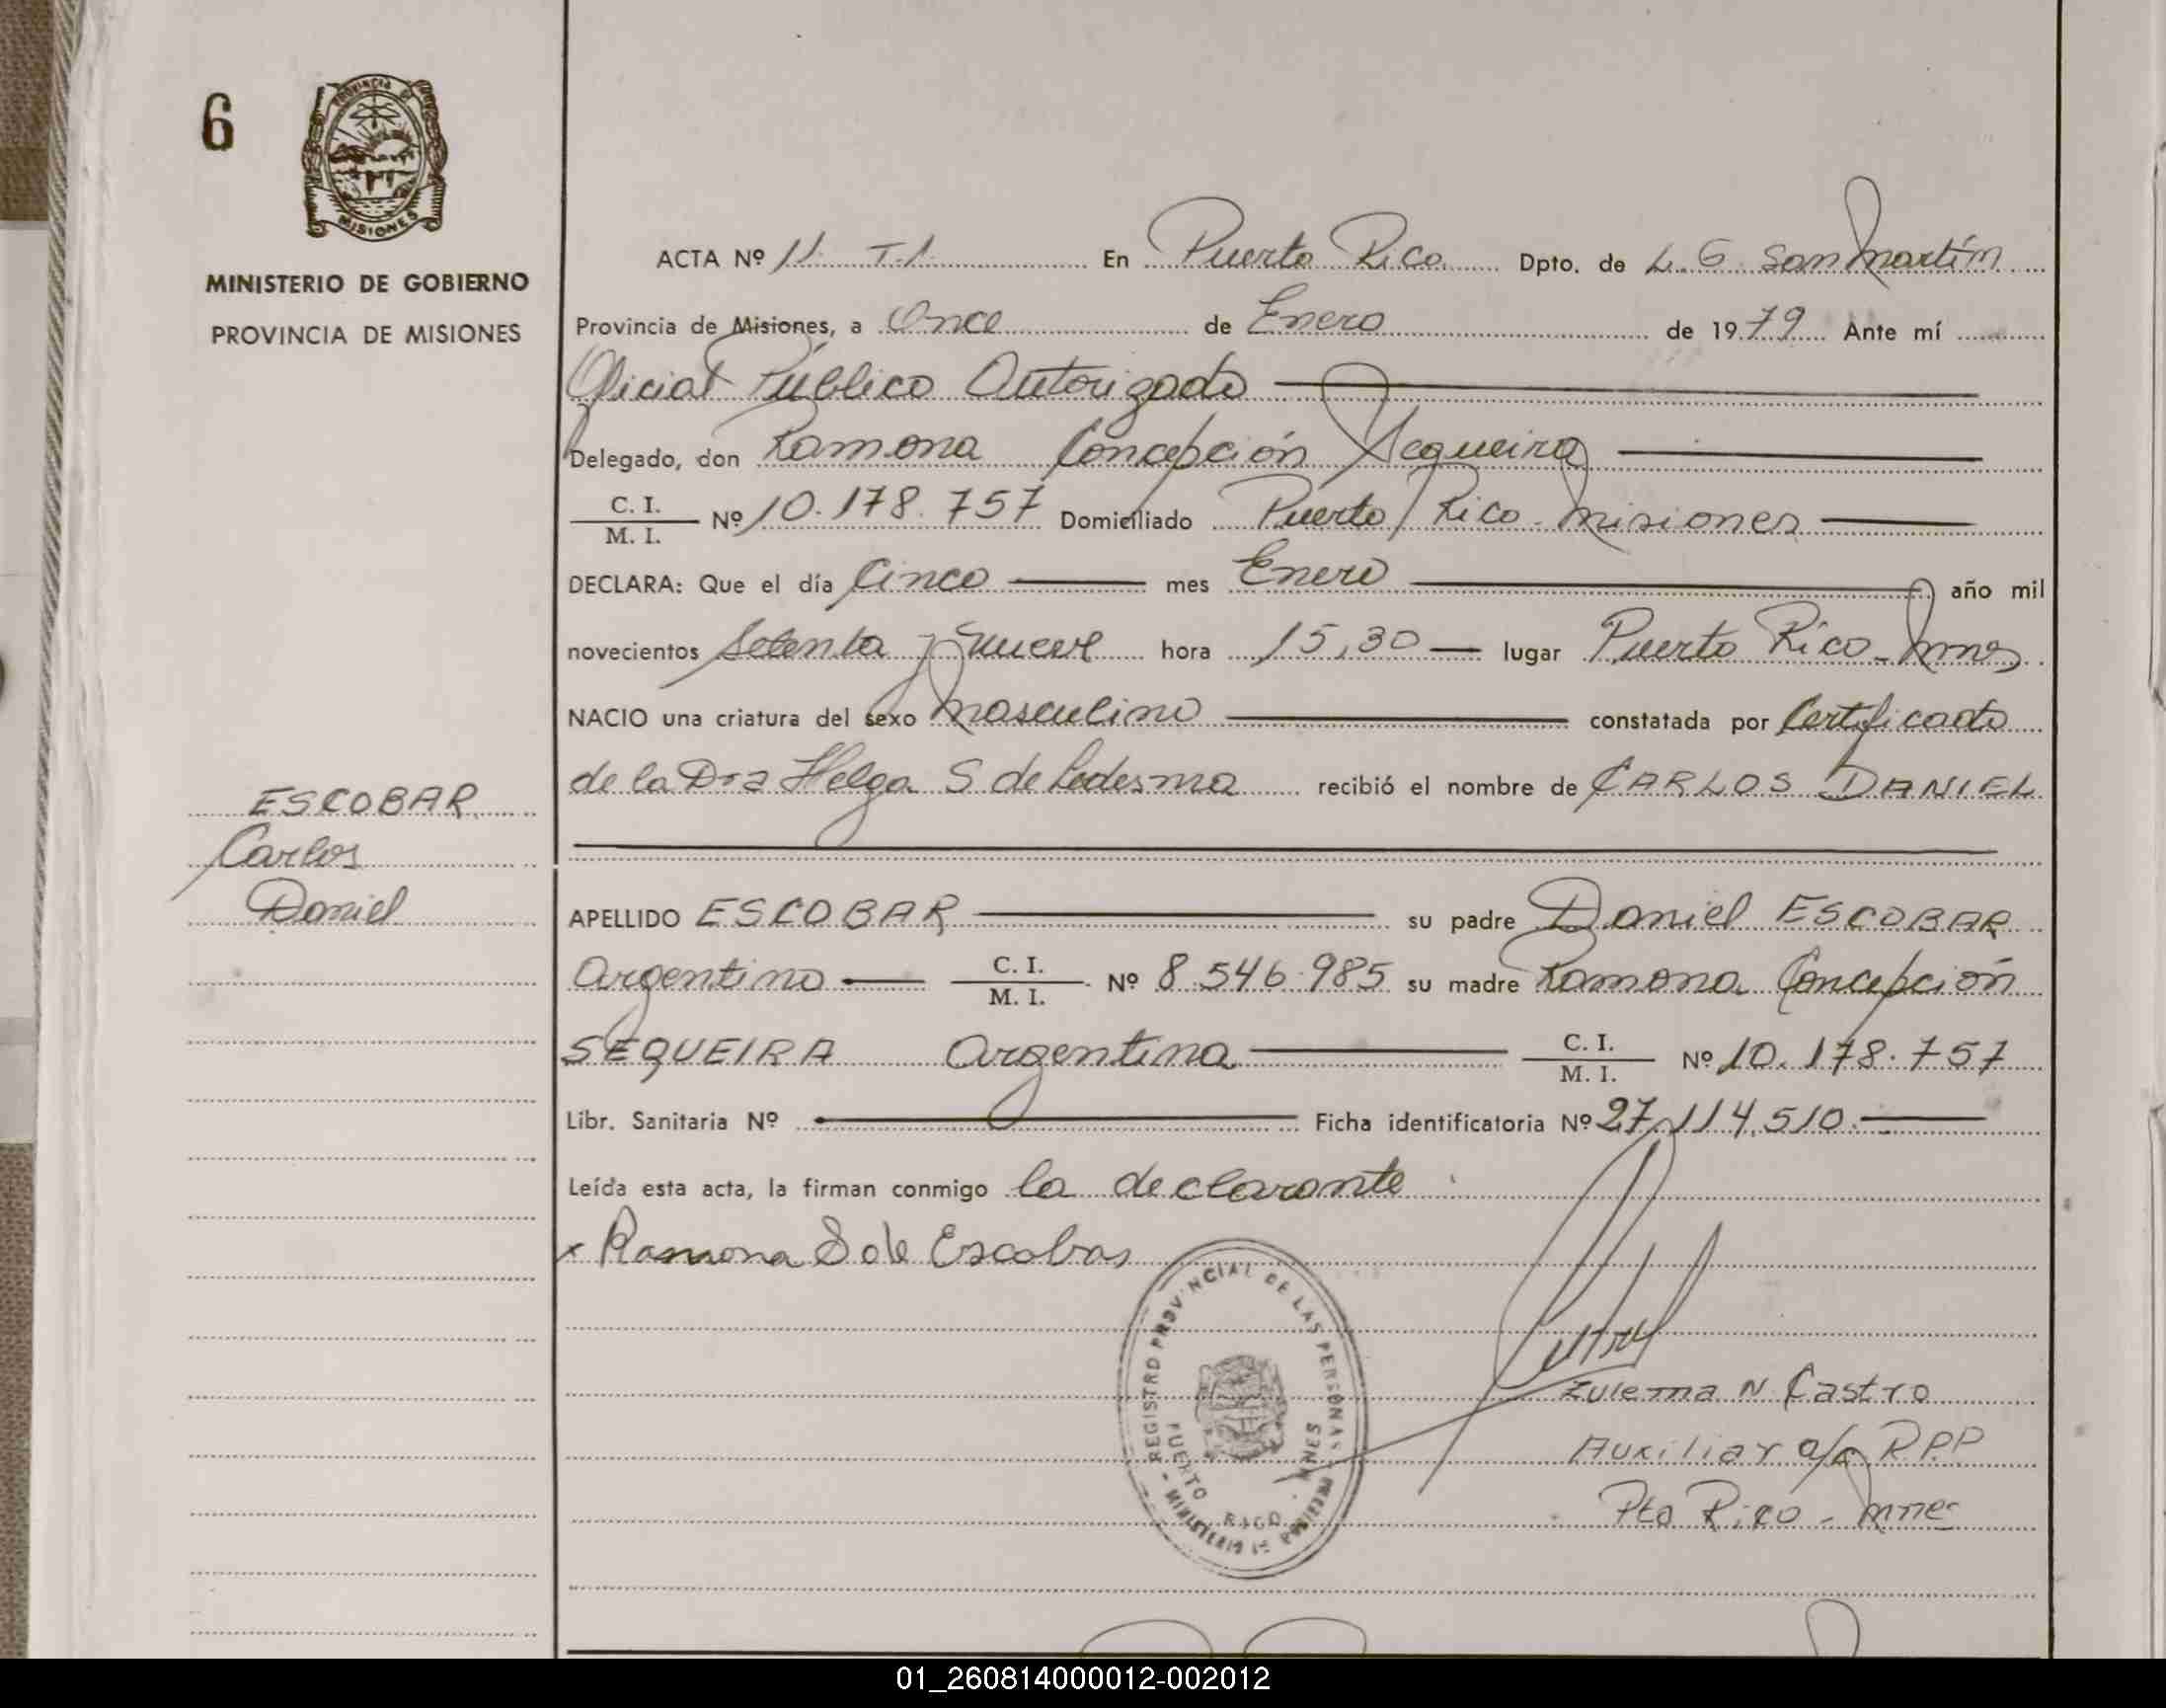 6
PROVINCIA DE
MISIONES
MINISTERIO DE GOBIERNO
PROVINCIA DE MISIONES
ESCOBAR
Carlos
Daniel
ACTA Nº 11 T.1 En Puerto Rico Dpto. de L. G. San Martín
Provincia de Misiones, a Once de Enero de 1979 Ante mí
Oficial Público Autorizado
Delegado, don Ramona Concepción Sequeira
C. I.
M. I. Nº 10.178.757 Domiciliado Puerto Rico - Misiones
DECLARA: Que el día Cinco mes Enero año mil
novecientos Setenta y nueve hora 15,30 lugar Puerto Rico - Mnes
NACIO una criatura del sexo Masculino constatada por Certificado
de la Dra Helga S de Ledesma recibió el nombre de CARLOS DANIEL
APELLIDO ESCOBAR su padre Daniel ESCOBAR
Argentino C. I.
M. I. Nº 8.546.985 su madre Ramona Concepción
SEQUEIRA Argentina C. I.
M. I. Nº 10.178.757
Libr. Sanitaria Nº Ficha identificatoria Nº 27.114.510
Leída esta acta, la firman conmigo la declarante
x Ramona S de Escobar
REGISTRO PROVINCIAL DE LAS PERSONAS
PUERTO RICO - MNES
- MINISTERIO DE GOBIERNO
Zulema N Castro
Auxiliar a/c R.P.P
Pto Rico - Mnes
01_260814000012-002012